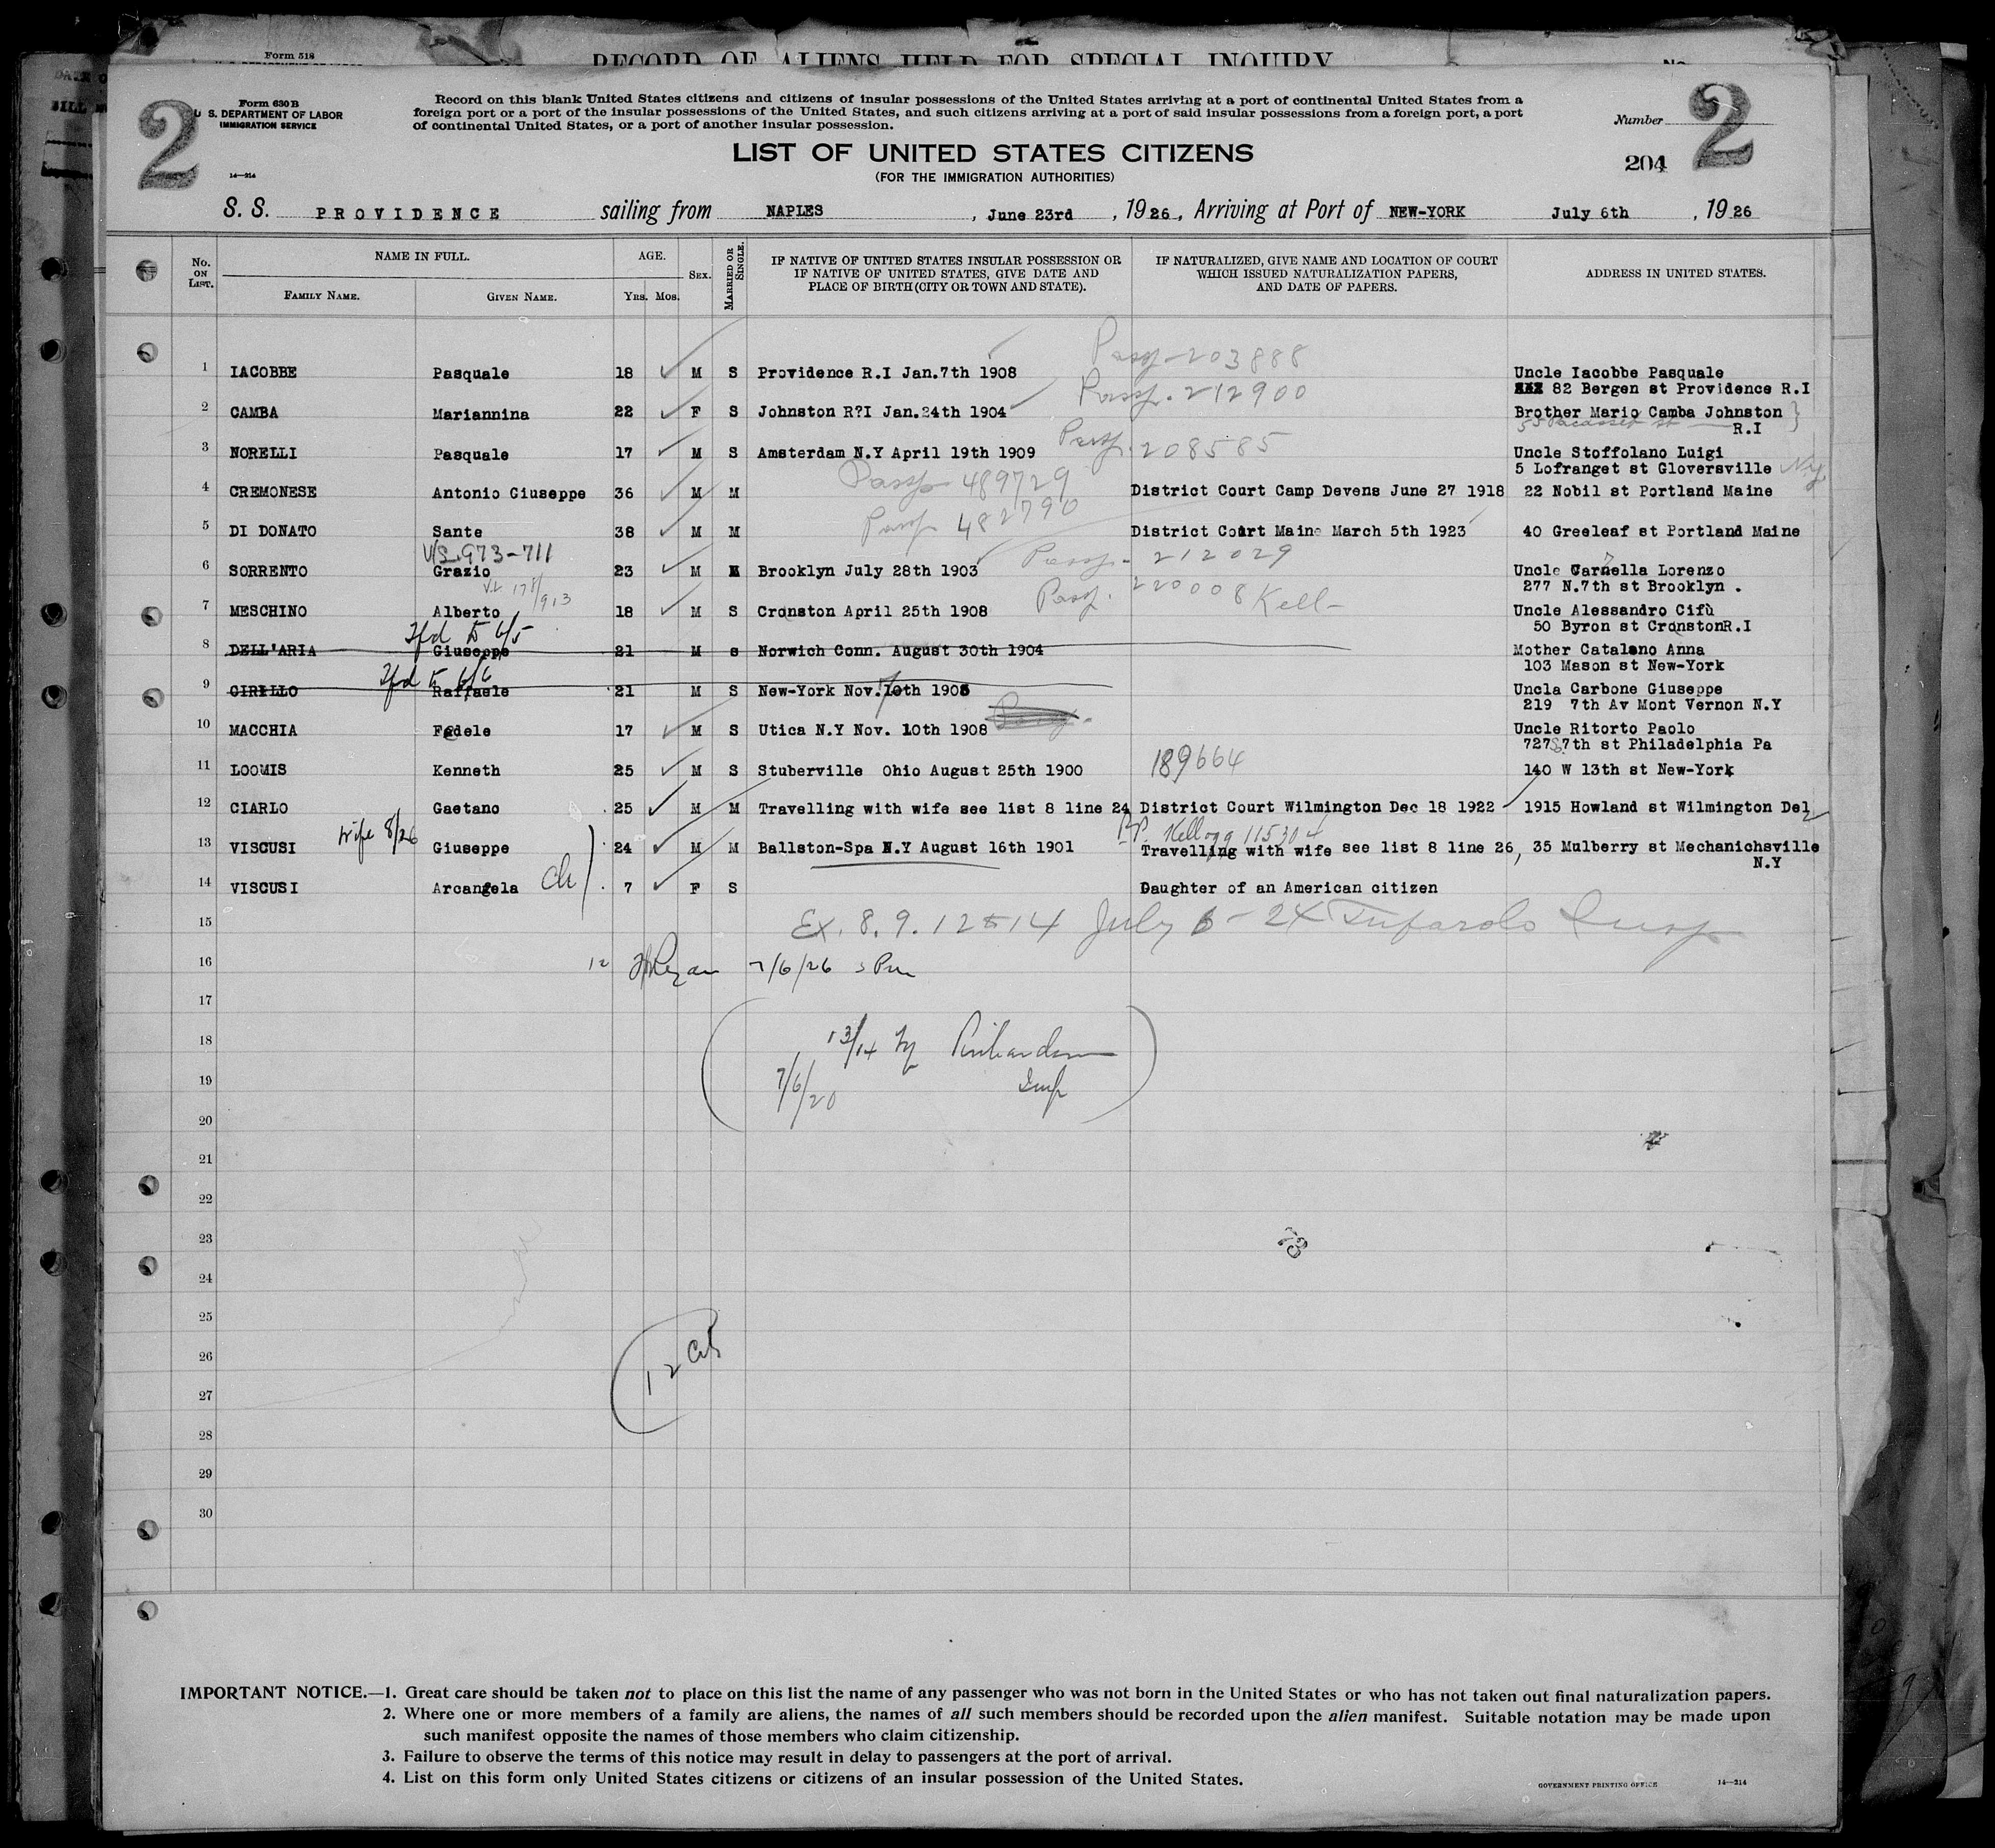 Form 518
RECORD OF ALIENS HELD FOR SPECIAL INQUIRY
No.
2
Form 630 B
U. S. DEPARTMENT OF LABOR
IMMIGRATION SERVICE
14—214
Record on this blank United States citizens and citizens of insular possessions of the United States arriving at a port of continental United States from a
foreign port or a port of the insular possessions of the United States, and such citizens arriving at a port of said insular possessions from a foreign port, a port
of continental United States, or a port of another insular possession.
LIST OF UNITED STATES CITIZENS
(FOR THE IMMIGRATION AUTHORITIES)
Number
204
2
S. S. PROVIDENCE sailing from NAPLES, June 23rd, 1926, Arriving at Port of NEW-YORK July 6th, 1926
No. ON LIST. NAME IN FULL. FAMILY NAME. GIVEN NAME. AGE. YRS. MOS. SEX. MARRIED OR SINGLE. IF NATIVE OF UNITED STATES INSULAR POSSESSION OR IF NATIVE OF UNITED STATES, GIVE DATE AND PLACE OF BIRTH (CITY OR TOWN AND STATE). IF NATURALIZED, GIVE NAME AND LOCATION OF COURT WHICH ISSUED NATURALIZATION PAPERS, AND DATE OF PAPERS. ADDRESS IN UNITED STATES.
Passp-203888
1 IACOBBE Pasquale 18 M S Providence R.I Jan.7th 1908 Uncle Iacobbe Pasquale
82 Bergen st Providence R.I
Passp. 212900
2 CAMBA Mariannina 22 F S Johnston R?I Jan.24th 1904 Brother Mario Camba Johnston
R.I
Passp. 208585
3 NORELLI Pasquale 17 M S Amsterdam N.Y April 19th 1909 Uncle Stoffolano Luigi
5 Lofranget st Gloversville NY
Passp 489729
4 CREMONESE Antonio Giuseppe 36 M M District Court Camp Devens June 27 1918 22 Nobil st Portland Maine
Passp 482790
5 DI DONATO Sante 38 M M District Court Maine March 5th 1923 40 Greeleaf st Portland Maine
V/S.973-711
Passp. 212029
6 SORRENTO Grazio 23 M Brooklyn July 28th 1903 Uncle Carnella Lorenzo
277 N.7th st Brooklyn .
178/913
Passp. 220008 Kell-
7 MESCHINO Alberto 18 M S Cranston April 25th 1908 Uncle Alessandro Cifù
50 Byron st Cranston R.I
Tfd to 6/5
8 DELL'ARIA Giuseppe 21 M s Norwich Conn. August 30th 1904 Mother Catalano Anna
103 Mason st New-York
Tfd to 6/6
9 CIRILLO Raffaele 21 M S New-York Nov. 10th 1905 Uncla Carbone Giuseppe
219 7th Av Mont Vernon N.Y
10 MACCHIA Fedele 17 M S Utica N.Y Nov. 10th 1908 Uncle Ritorto Paolo
727 S 7th st Philadelphia Pa
11 LOOMIS Kenneth 25 M S Stuberville Ohio August 25th 1900 189664 140 W 13th st New-York
12 CIARLO Gaetano 25 M M Travelling with wife see list 8 line 24 District Court Wilmington Dec 18 1922 1915 Howland st Wilmington Del
PP. Kellogg 115304
13 VISCUSI wife 8/26 Giuseppe 24 M M Ballston-Spa N.Y August 16th 1901 Travelling with wife see list 8 line 26, 35 Mulberry st Mechanichsville
N.Y
14 VISCUSI Arcangela ch 7 F S Daughter of an American citizen
15 Ex. 8. 9. 12 to 14 July 6-26 Insp
16 12 7/6/26
17
18 13/14 by Richardson
19 7/6/20 Insp
20
21
22
23
24
25
26 12 cit
27
28
29
30
IMPORTANT NOTICE.—1. Great care should be taken not to place on this list the name of any passenger who was not born in the United States or who has not taken out final naturalization papers.
2. Where one or more members of a family are aliens, the names of all such members should be recorded upon the alien manifest. Suitable notation may be made upon
such manifest opposite the names of those members who claim citizenship.
3. Failure to observe the terms of this notice may result in delay to passengers at the port of arrival.
4. List on this form only United States citizens or citizens of an insular possession of the United States.
GOVERNMENT PRINTING OFFICE 14—214